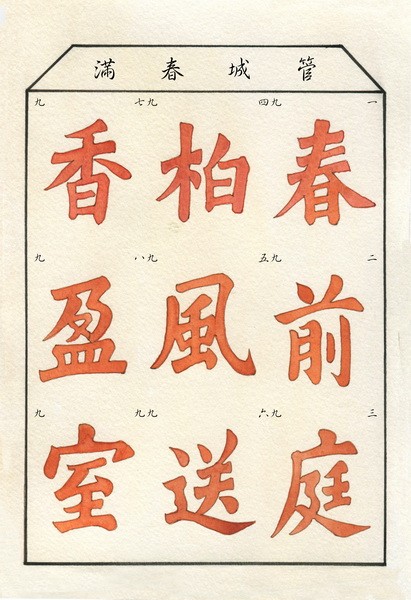 管城春滿
一九
春
二九
前
三九
庭
四九
柏
五九
風
六九
送
七九
香
八九
盈
九九
室